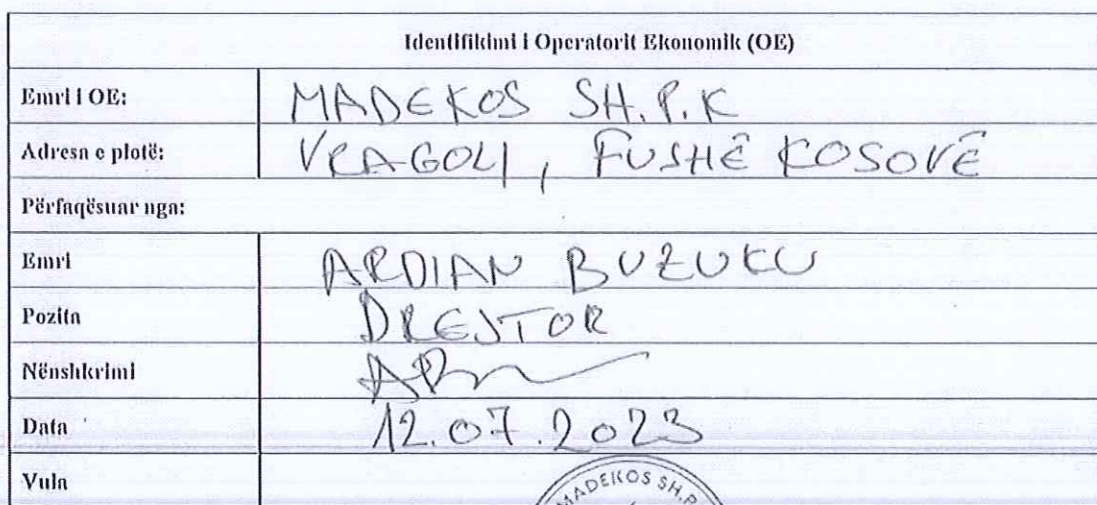 Identifikimi i Operatorit Ekonomik (OE)
Emri i OE: MADEKOS SH.P.K
Adresa e plotë: VRAGOLI, FUSHË KOSOVË
Përfaqësuar nga:
Emri ARDIAN BUZUKU
Pozita DREJTOR
Nënshkrimi
Data 12.07.2023
Vula MADEKOS SH.P.